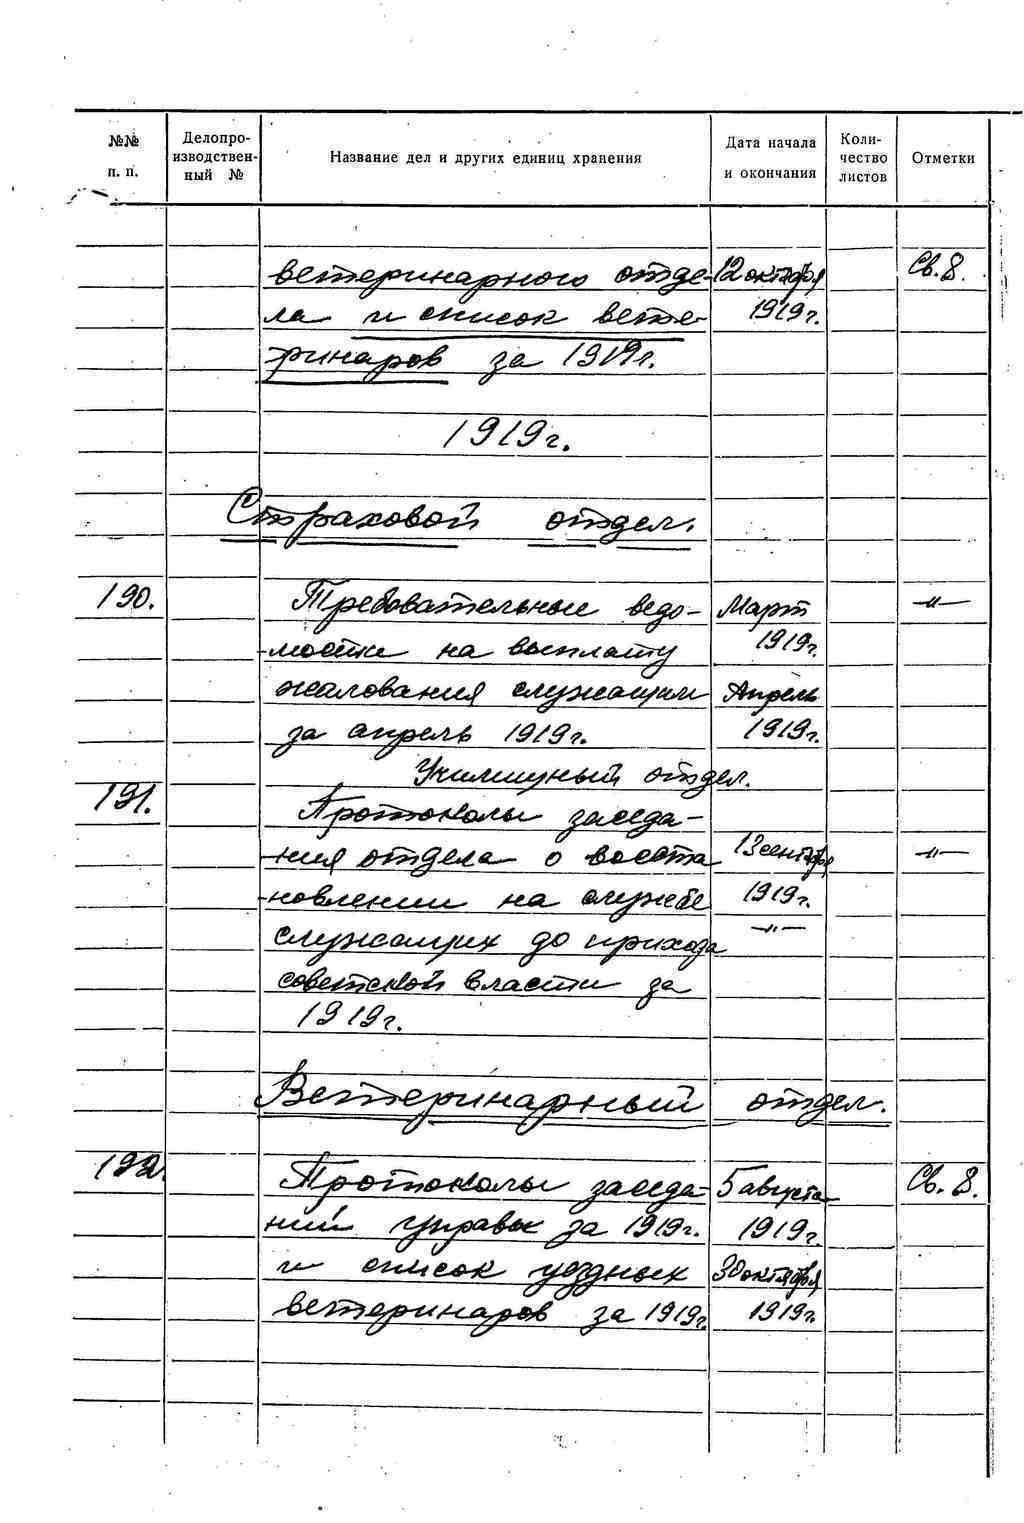 №№ п. п. | Делопро-изводствен-ный № | Название дел и других единиц хранения | Дата начала и окончания | Коли-чество листов | Отметки
ветеринарного отде- | 12 октября | Св. 8.
ла и список вете- | 1919 г.
ринаров за 1919 г.
1919 г.
Страховой отдел.
190. | Требовательные ведо- | Март | -"-
мости на выплату | 1919 г.
жалования служащим | Апрель
за апрель 1919 г. | 1919 г.
Училищный отдел.
191. | Протоколы заседа-
ния отдела о восста | 13 сентября | -"-
новлении на службе | 1919 г.
служащих до прихода | -"-
советской власти за
1919 г.
Ветеринарный отдел.
192. | Протоколы заседа- | 5 августа | Св. 8.
ний управы за 1919 г. | 1919 г.
и список уездных | 30 октября
ветеринаров за 1919 г. | 1919 г.